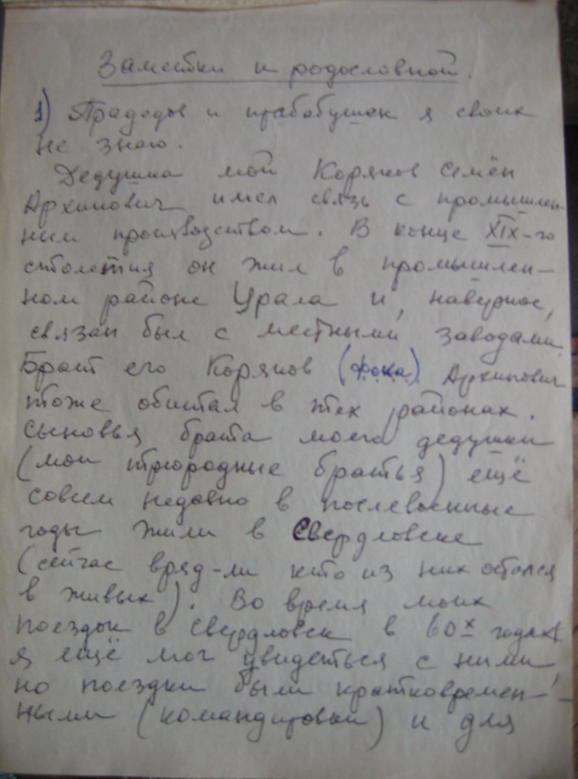 Заметки к родословной.
1) Прадедов и прабабушек я своих
не знаю.
Дедушка мой Коряков Семён
Архипович имел связь с промышлен-
ным производством. В конце XIX-го
столетия он жил в промышлен-
ном районе Урала и, наверное,
связан был с местными заводами.
Брат его Коряков (Фока) Архипович
тоже обитал в тех районах.
Сыновья брата моего дедушки
(мои троюродные братья) ещё
совсем недавно в послевоенные
годы жили в Свердловске
(сейчас вряд-ли кто из них остался
в живых). Во время моих
поездок в Свердловск в 60х годах
я ещё мог увидеться с ними,
но поездки были кратковремен-
ными (командировки) и для